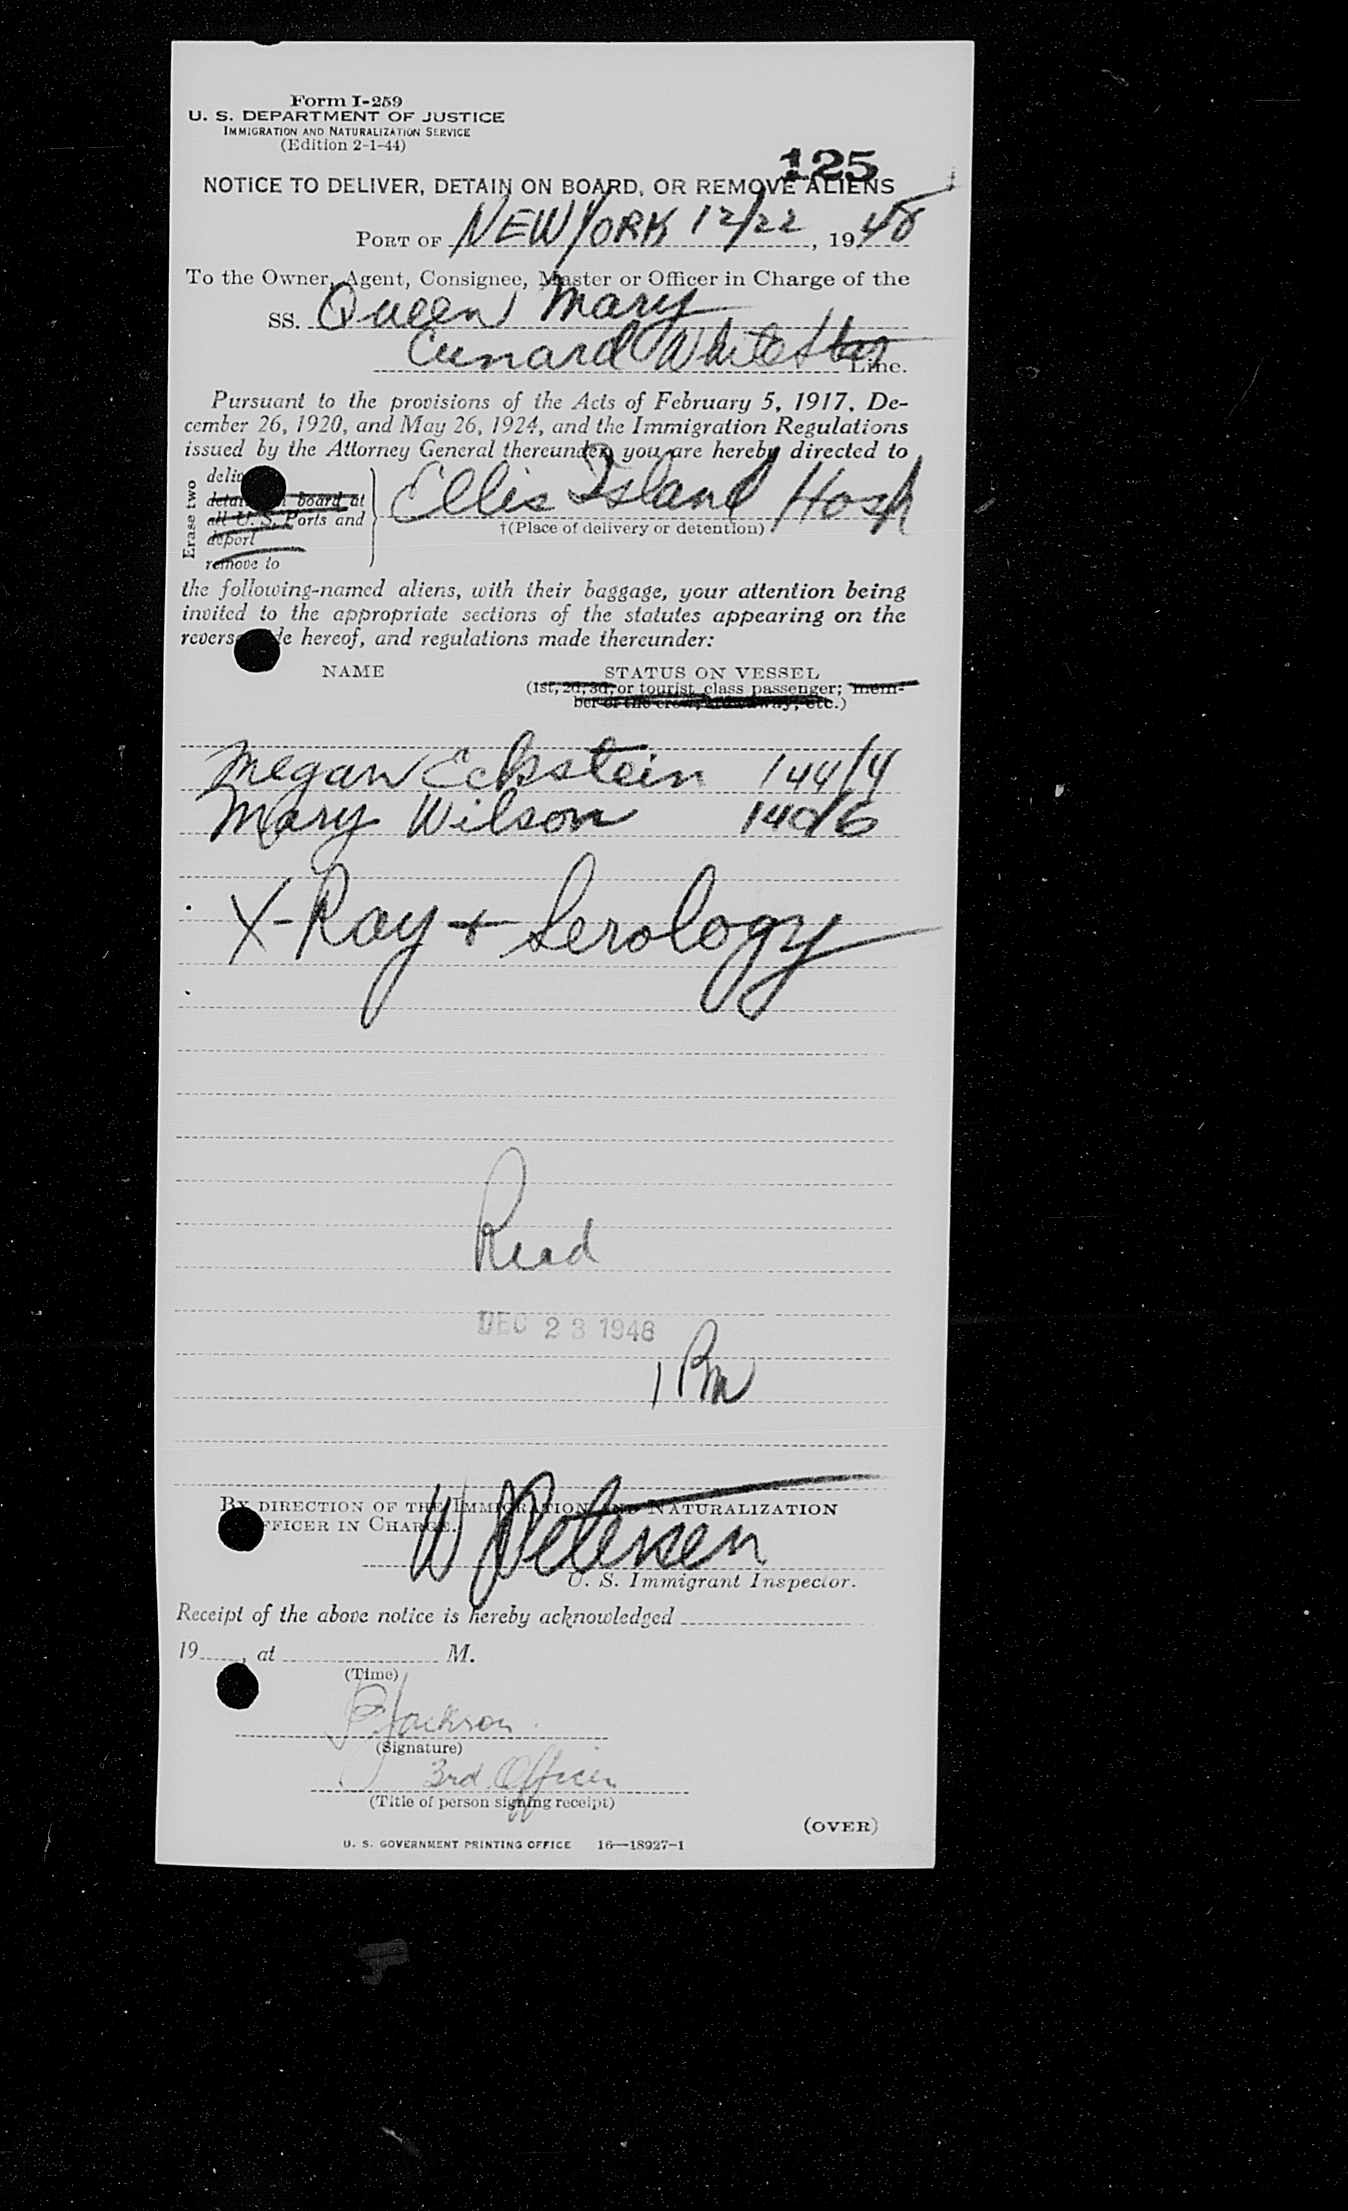 Form I-259
U. S. DEPARTMENT OF JUSTICE
IMMIGRATION AND NATURALIZATION SERVICE
(Edition 2-1-44)
125
NOTICE TO DELIVER, DETAIN ON BOARD, OR REMOVE ALIENS
PORT OF NEW YORK 12/22, 1948
To the Owner, Agent, Consignee, Master or Officer in Charge of the
SS. Queen Mary
Cunard White Star Line.
Pursuant to the provisions of the Acts of February 5, 1917, De-
cember 26, 1920, and May 26, 1924, and the Immigration Regulations
issued by the Attorney General thereunder, you are hereby directed to
Erase two
board at
all U. S. Ports and
deport
remove to
Ellis Island Hosp
†(Place of delivery or detention)
the following-named aliens, with their baggage, your attention being
invited to the appropriate sections of the statutes appearing on the
hereof, and regulations made thereunder:
NAME STATUS ON VESSEL
(1st, 2d, 3d, or tourist class passenger; mem-
ber of the crew, stowaway, etc.)
Megan Eckstein 144/4
Mary Wilson 140/6
X-Ray + Serology
Read
DEC 23 1948
1 PM
BY DIRECTION OF THE IMMIGRATION AND NATURALIZATION
OFFICER IN CHARGE.
W Petersen
U. S. Immigrant Inspector.
Receipt of the above notice is hereby acknowledged
19 , at M.
(Time)
Jackson
(Signature)
3rd Officer
(Title of person signing receipt)
(OVER)
U. S. GOVERNMENT PRINTING OFFICE 16—18927-1